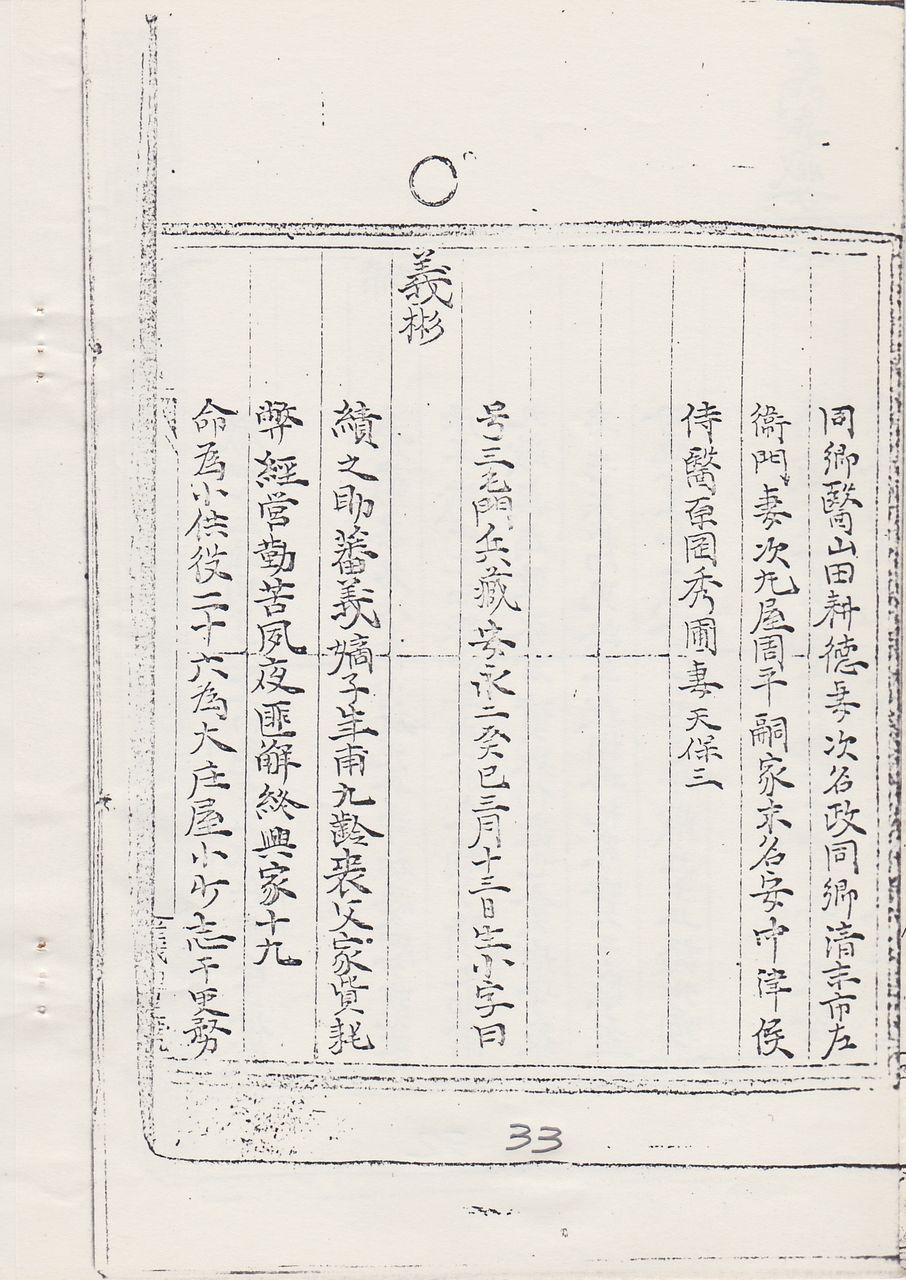 同郷醫山田耕德妻次名政同郷清末市左
衞門妻次九屋周平嗣家末名安中津侯
侍醫原田秀圃妻天保三
号三毛門兵蔵安永二癸巳三月十三日生小字曰
義彬
績之助蕃義嫡子生甫九齡喪父家貲耗
弊經営勤苦夙夜匪解終興家十九
命為小供役二十六為大庄屋小少志于史努
33